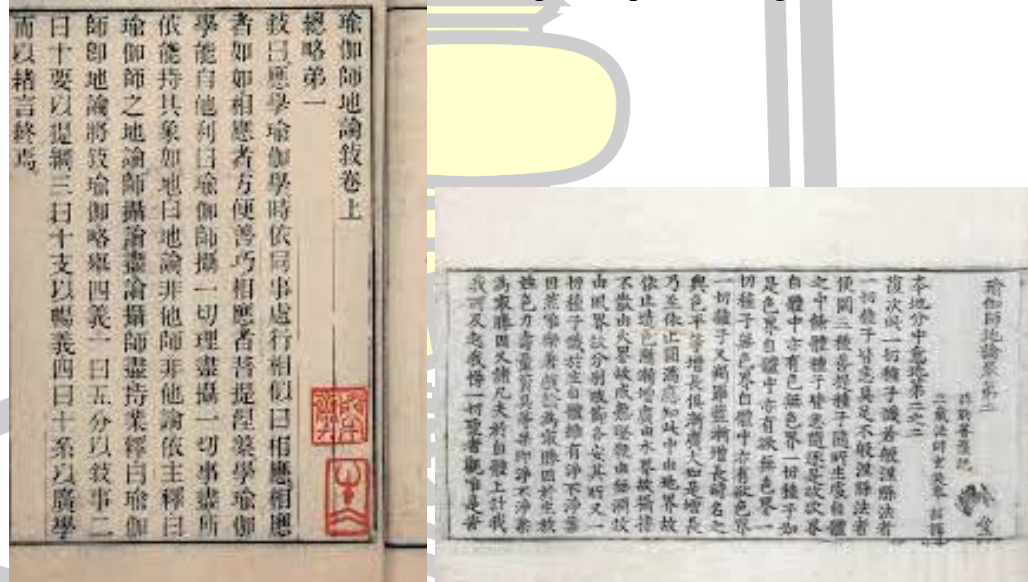 瑜伽師地論敘卷上
總略第一
敘曰應學瑜伽學時依同事處行相似曰相應相應
者如如相應者方便善巧相應者菩提涅槃學瑜伽
學能自他利曰瑜伽師攝一切理盡攝一切事盡所
依能持其象如地曰地論非他師非他論依主釋曰
瑜伽師之地論師攝論盡論攝師盡持業釋曰瑜伽
師卽地論將敘瑜伽略舉四義一曰五分以敘事二
曰十要以提綱三曰十支以暢義四曰十系以廣學
而以緒言終焉
瑜伽師地論卷第二
彌勒菩薩說
三藏法師玄奘奉 詔譯
本地分中意地第二之二
復次此一切種子識若般涅槃法者
一切種子皆悉具足不般涅槃法者
便闕三種菩提種子隨所生處自體
之中餘體種子皆悉隨逐是故欲界
自體中亦有色無色界一切種子如
是色界自體中亦有欲無色界一
切種子無色界自體中亦有欲色界
一切種子又羯羅藍漸增長時名之
與色平等增長俱漸廣大如是增長
乃至依止圓滿應知此中由地界故
依止造色漸漸增廣由水界故攝持
不散由火界故成熟堅硬由無潤故
由風界故分別肢節各安其所又一
切種子識於生自體雖有淨不淨業
因然唯樂著戲論為最勝因於生族
姓色力壽量資具等果即淨不淨業
為最勝因又諸凡夫於自體上計我
我所及起我慢一切聖者觀唯是苦